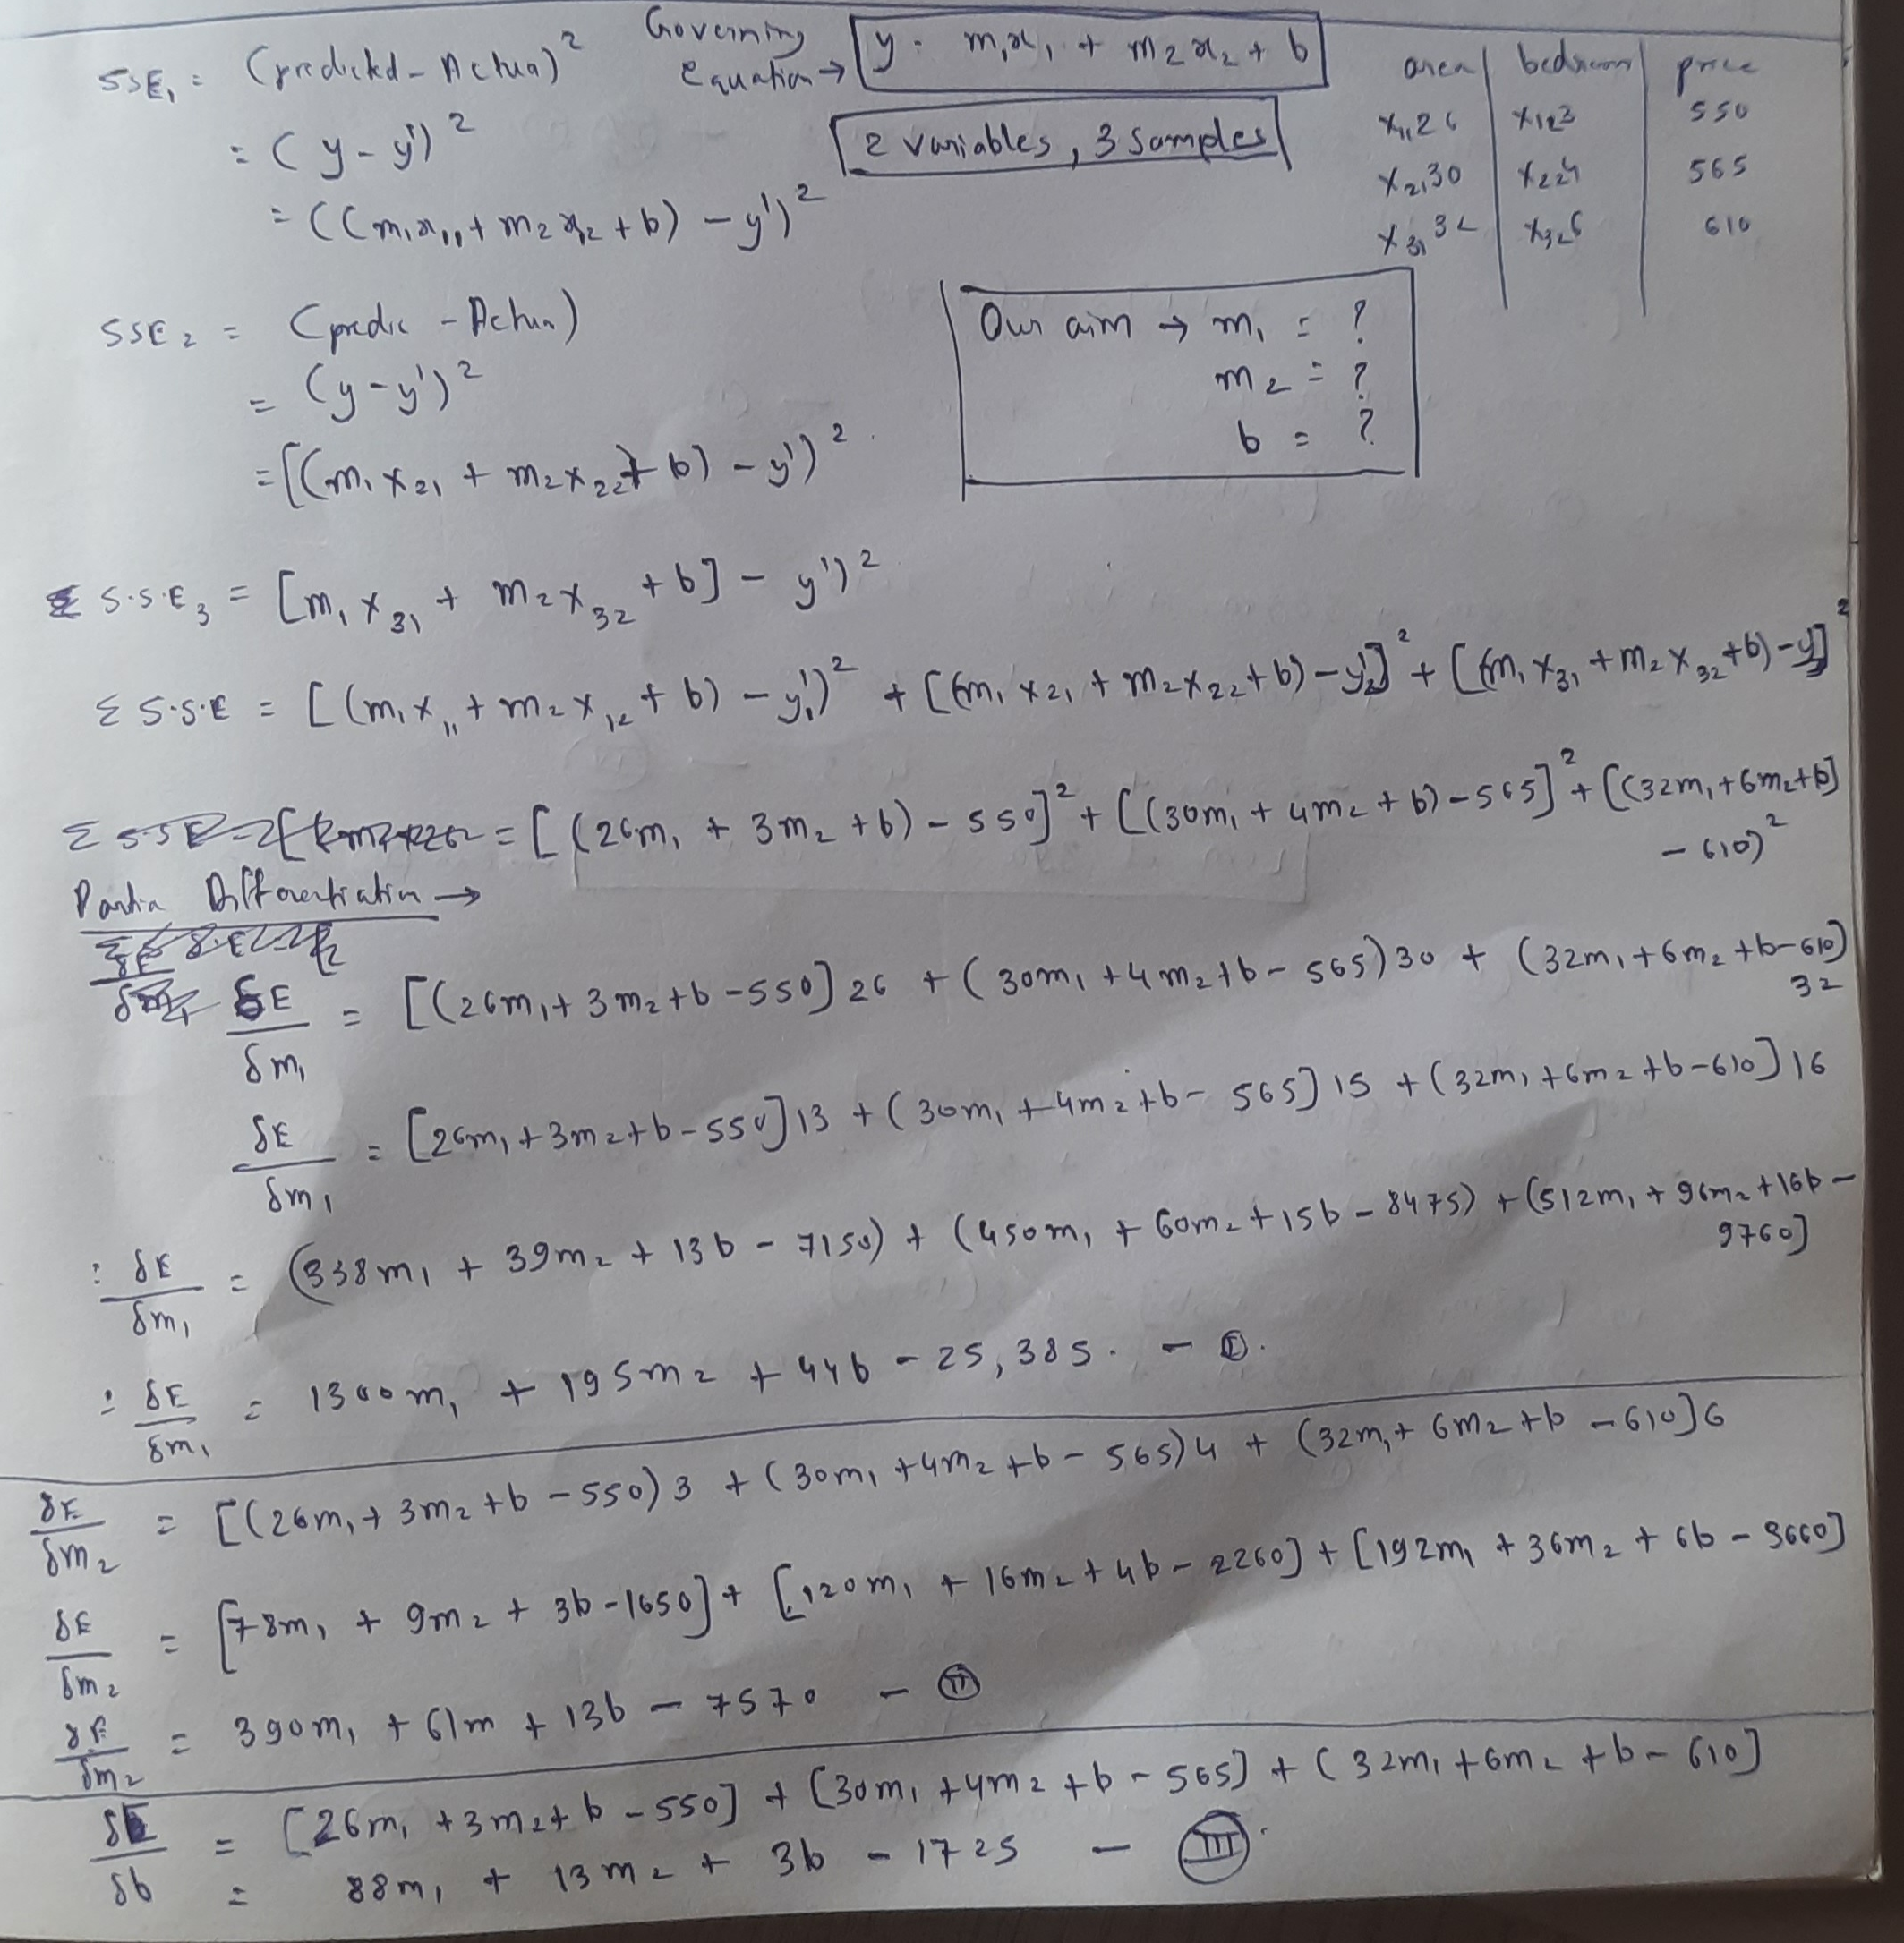 SSE₁ = (predicted - Actua)²
= (y - y')²
= ((m₁x₁₁ + m₂x₁₂ + b) - y')²
Governing Equation → y = m₁x₁ + m₂x₂ + b
2 variables, 3 samples
area | bedroom | price
x₁₁ 26 | x₁₂ 3 | 550
x₂₁ 30 | x₂₂ 4 | 565
x₃₁ 32 | x₃₂ 6 | 610
SSE₂ = (predic - Actua)
= (y - y')²
= [(m₁x₂₁ + m₂x₂₂ + b) - y')²
Our aim → m₁ = ?
m₂ = ?
b = ?
S.S.E₃ = [m₁x₃₁ + m₂x₃₂ + b] - y')²
Σ S.S.E = [(m₁x₁₁ + m₂x₁₂ + b) - y₁')² + [(m₁x₂₁ + m₂x₂₂ + b) - y₂']² + [(m₁x₃₁ + m₂x₃₂ + b) - y]²
= [(26m₁ + 3m₂ + b) - 550]² + [(30m₁ + 4m₂ + b) - 565]² + [(32m₁ + 6m₂ + b]
- 610)²
Partia Differentiation →
δE/δm₁ = [(26m₁ + 3m₂ + b - 550] 26 + (30m₁ + 4m₂ + b - 565) 30 + (32m₁ + 6m₂ + b - 610)
32
δE/δm₁ = [26m₁ + 3m₂ + b - 550] 13 + (30m₁ + 4m₂ + b - 565] 15 + (32m₁ + 6m₂ + b - 610] 16
: δE/δm₁ = (338m₁ + 39m₂ + 13b - 7150) + (450m₁ + 60m₂ + 15b - 8475) + (512m₁ + 96m₂ + 16b -
9760]
: δE/δm₁ = 1300m₁ + 195m₂ + 44b - 25,385. - Ⓘ.
δE/δm₂ = [(26m₁ + 3m₂ + b - 550) 3 + (30m₁ + 4m₂ + b - 565) 4 + (32m₁ + 6m₂ + b - 610] 6
δE/δm₂ = [78m₁ + 9m₂ + 3b - 1650] + [120m₁ + 16m₂ + 4b - 2260] + [192m₁ + 36m₂ + 6b - 3660]
δE/δm₂ = 390m₁ + 61m + 13b - 7570 - Ⅱ
δE/δb = [26m₁ + 3m₂ + b - 550] + [30m₁ + 4m₂ + b - 565] + (32m₁ + 6m₂ + b - 610]
= 88m₁ + 13m₂ + 3b - 1725 - Ⅲ.